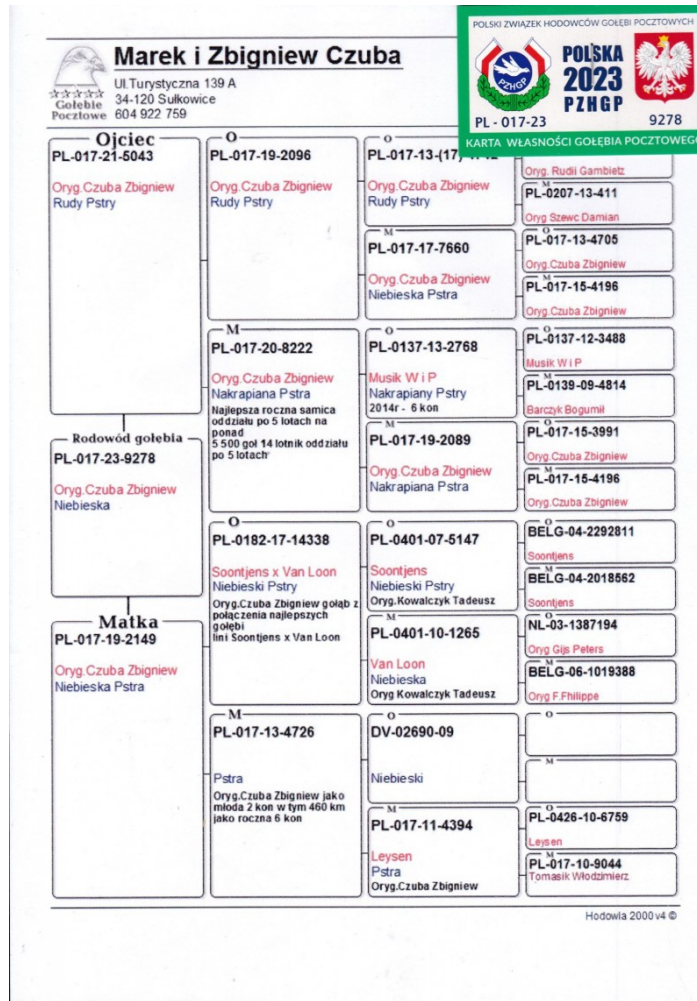 Marek i Zbigniew Czuba
Ul.Turystyczna 139 A
34-120 Sułkowice
604 922 759
Gołębie
Pocztowe
POLSKI ZWIĄZEK HODOWCÓW GOŁĘBI POCZTOWYCH
PZHGP
POLSKA
2023
PZHGP
PL - 017-23
9278
KARTA WŁASNOŚCI GOŁĘBIA POCZTOWEGO
Rodowód gołębia
PL-017-23-9278
Oryg.Czuba Zbigniew
Niebieska
Ojciec
PL-017-21-5043
Oryg.Czuba Zbigniew
Rudy Pstry
Matka
PL-017-19-2149
Oryg.Czuba Zbigniew
Niebieska Pstra
O
PL-017-19-2096
Oryg.Czuba Zbigniew
Rudy Pstry
M
PL-017-20-8222
Oryg.Czuba Zbigniew
Nakrapiana Pstra
Najlepsza roczna samica
oddziału po 5 lotach na
ponad
5 500 goł 14 lotnik oddziału
po 5 lotach
O
PL-0182-17-14338
Soontjens x Van Loon
Niebieski Pstry
Oryg.Czuba Zbigniew gołąb z
połączenia najlepszych
gołębi
lini Soontjens x Van Loon
M
PL-017-13-4726
Pstra
Oryg.Czuba Zbigniew jako
młoda 2 kon w tym 460 km
jako roczna 6 kon
O
PL-017-13-(17)
Oryg.Czuba Zbigniew
Rudy Pstry
M
PL-017-17-7660
Oryg.Czuba Zbigniew
Niebieska Pstra
O
PL-0137-13-2768
Musik W i P
Nakrapiany Pstry
2014r - 6 kon
M
PL-017-19-2089
Oryg.Czuba Zbigniew
Nakrapiana Pstra
O
PL-0401-07-5147
Soontjens
Niebieski Pstry
Oryg.Kowalczyk Tadeusz
M
PL-0401-10-1265
Van Loon
Niebieska
Oryg Kowalczyk Tadeusz
O
DV-02690-09
Niebieski
M
PL-017-11-4394
Leysen
Pstra
Oryg.Czuba Zbigniew
Oryg. Rudii Gambietz
M
PL-0207-13-411
Oryg Szewc Damian
O
PL-017-13-4705
Oryg.Czuba Zbigniew
M
PL-017-15-4196
Oryg.Czuba Zbigniew
O
PL-0137-12-3488
Musik W i P
M
PL-0139-09-4814
Barczyk Bogumił
O
PL-017-15-3991
Oryg.Czuba Zbigniew
M
PL-017-15-4196
Oryg.Czuba Zbigniew
O
BELG-04-2292811
Soontjens
M
BELG-04-2018562
Soontjens
O
NL-03-1387194
Oryg Gijs Peters
M
BELG-06-1019388
Oryg F.Fhilippe
O
M
O
PL-0426-10-6759
Leysen
M
PL-017-10-9044
Tomasik Włodzimierz
Hodowla 2000 v4 ©